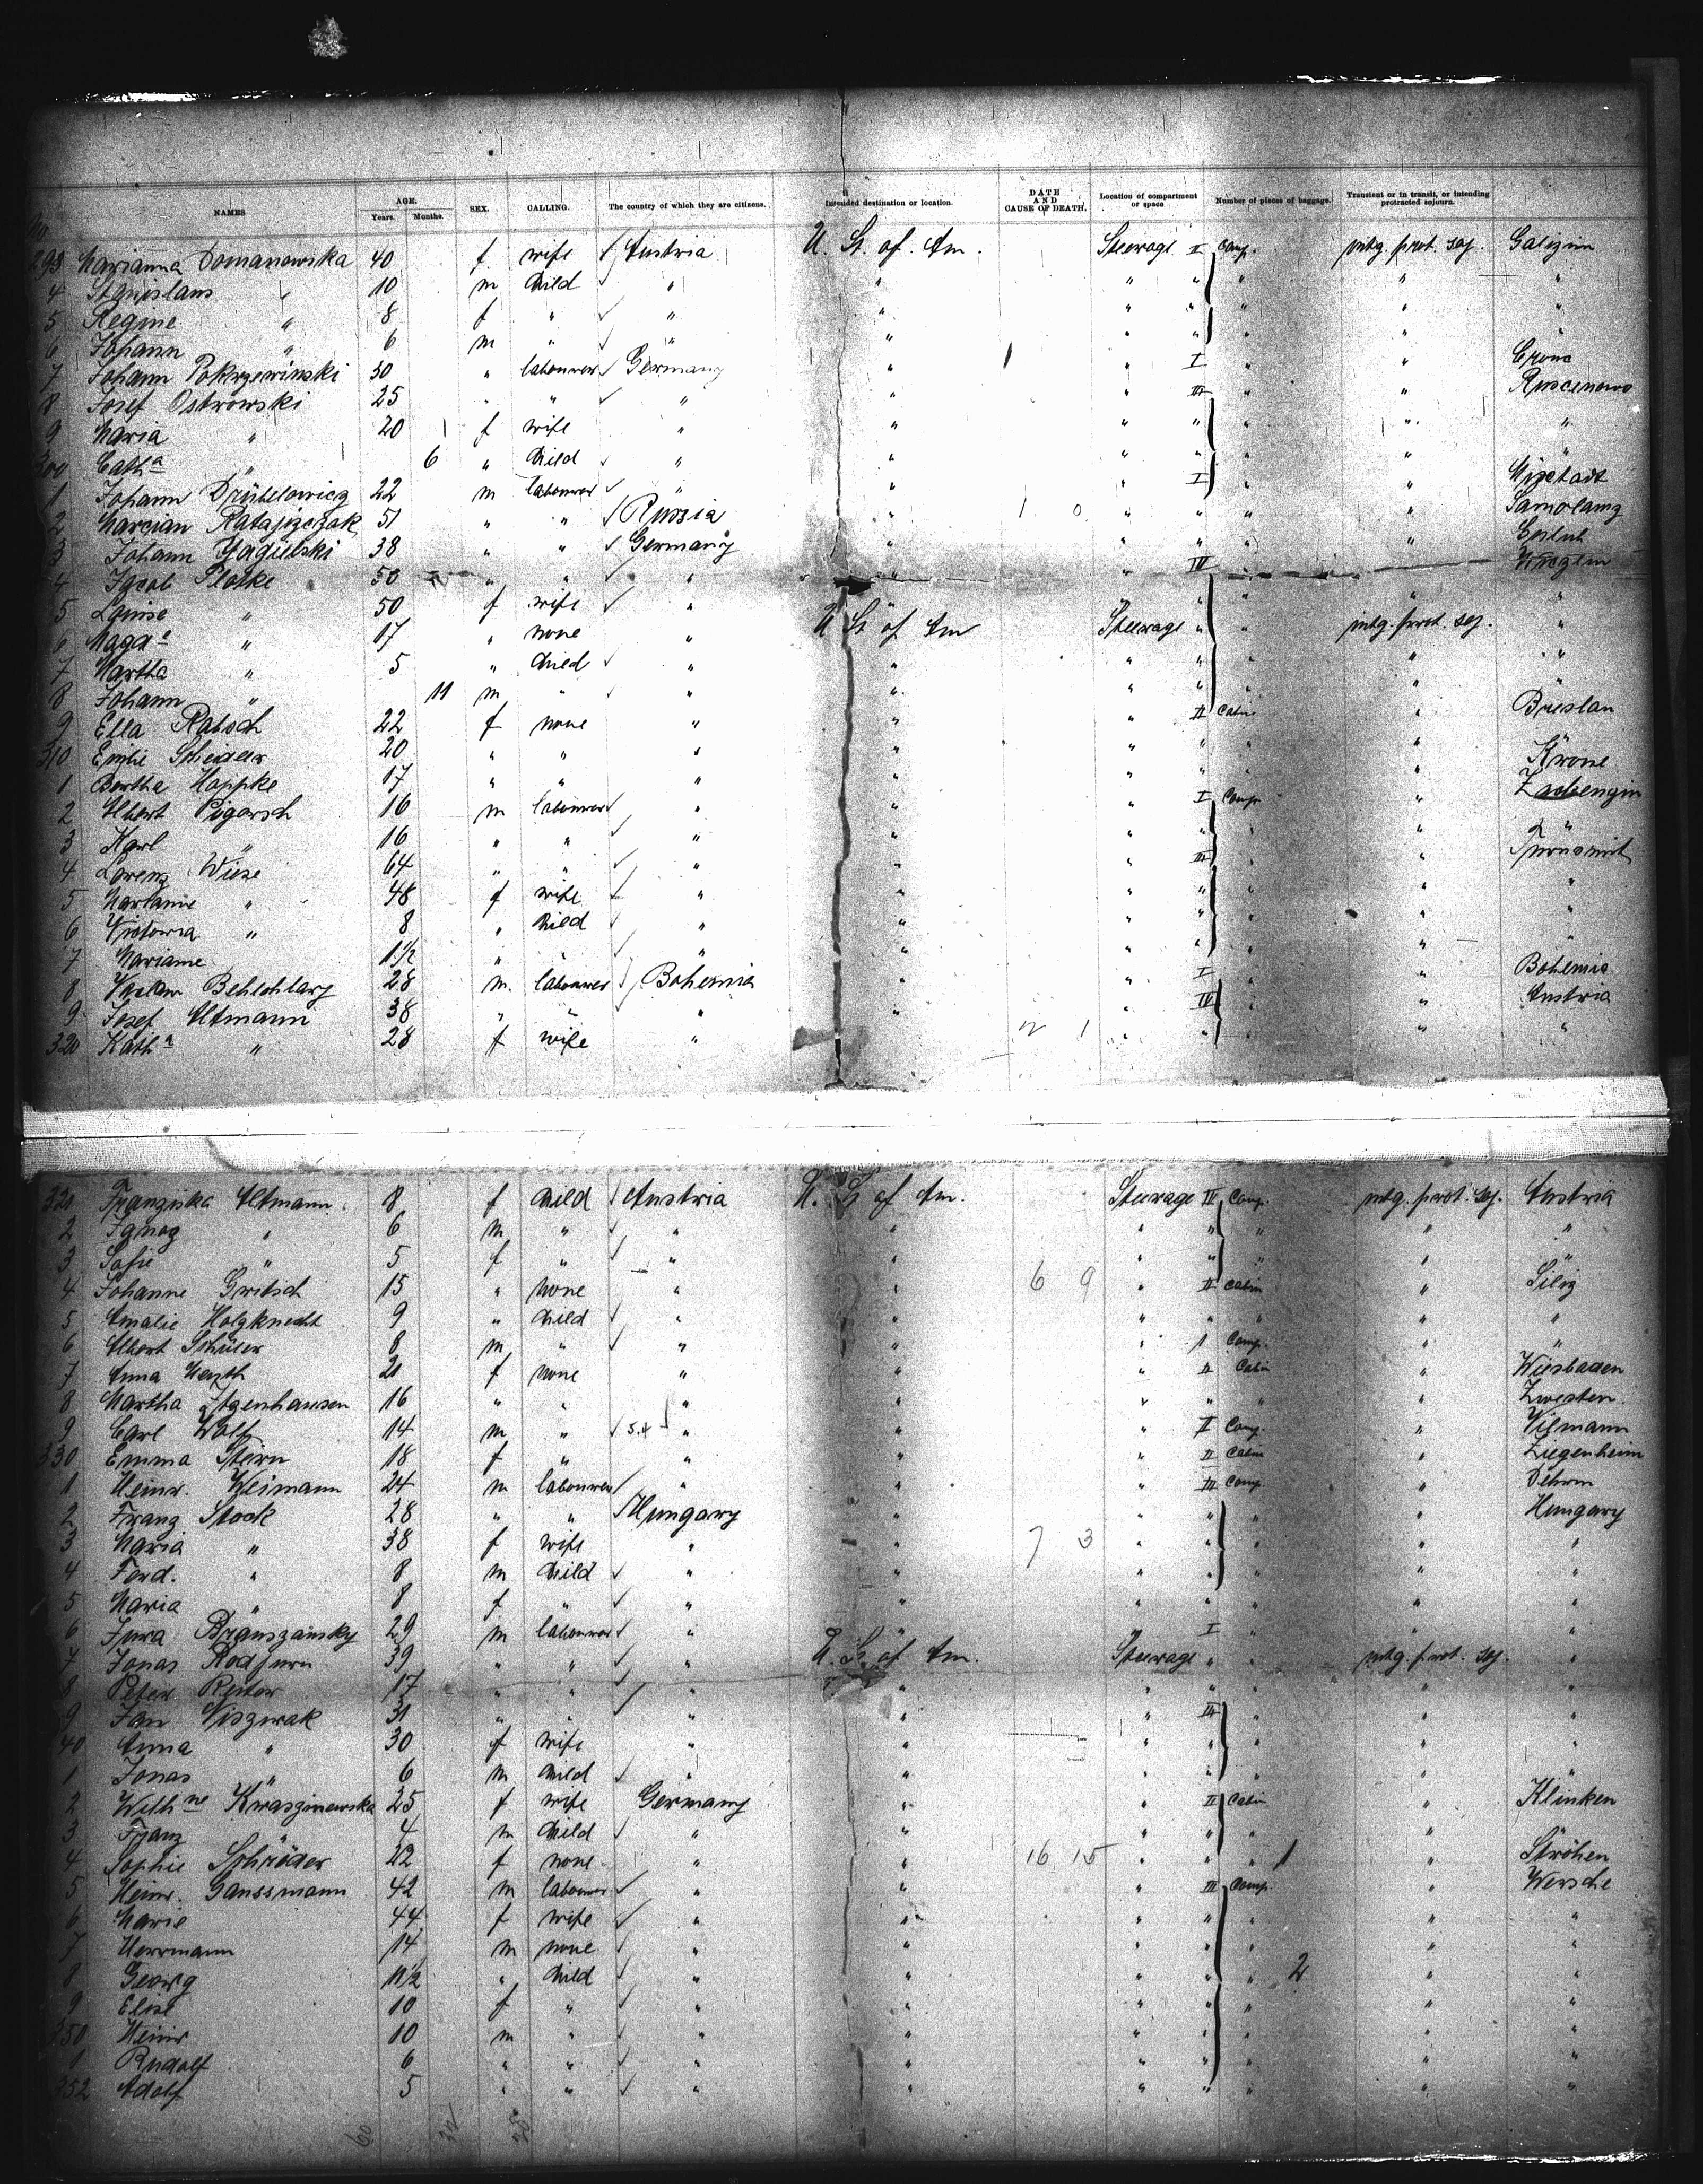 NAMES AGE. Years. Months. SEX. CALLING. The country of which they are citizens. Intended destination or location. DATE AND CAUSE OF DEATH. Location of compartment or space Number of pieces of baggage. Transient or in transit, or intending protracted sojourn.
293 Marianna Domanowska 40 f wife Austria U. St. of. Am. Steerage II Comp. intg. prot. soj. Galizien
4 Stanislaus " 10 m child " " " " " " "
5 Regine " 8 f " " " " " " " "
6 Johann " 6 m " " " " " " " "
7 Johann Pokrzewinski 30 " labourer Germany " " I " " Crone
8 Josef Ostrowski 25 " " " " " III " "
9 Maria " 20 f wife " " " " " " "
300 Cath a " 6 " child " " " " " " "
1 Johann 22 m labourer " " " I " "
2 Marcian Ratajizczak 51 " " Russia " 1 0 " " " "
3 Johann Jagulski 38 " " Germany " " " " "
4 Jacob Plotke 50 " " " " " III
5 Louise " 50 f wife " " " " " "
6 Magd a " 17 " none " U St of Am Steerage " " intg. prot. soj. "
7 Martha " 5 " child " " " " " " "
8 Johann " 11 m " " " " " " " "
9 Ella Rabsch 22 f none " " " II Cabin " Breslau
310 Emilie Scheidler 20 " " " " " " " " Krone
1 Bertha Hoppke 17 " " " " " " " "
2 Albert Pigorsch 16 m labourer " " " I Comp. "
3 Karl " 16 " " " " " " " " "
4 Lorenz Wiese 64 " " " " " III " "
5 Marianne " 48 f wife " " " " " " "
6 Victoria " 8 " child " " " " " " "
7 Marianne 1½ " " " " " " " "
8 28 m. labourer Bohemia " " I " Bohemia
9 Josef Altmann 38 " " " " " IV " Austria
320 Kath a " 28 f wife " " 1 " " " "
321 Franziska Altmann 8 f child Austria U. St of Am. Steerage IV Comp. intg. prot. soj. Austria
2 Ignaz " 6 m " " " " " " " "
3 Sofie " 5 f " " " " " " " "
4 Johanne Gritsch 15 " none " " 6 9 " II Cabin "
5 Amalie Holzknecht 9 " child " " " " " " "
6 Albert Schuler 8 m " " " " 1 Comp. " "
7 Anna 21 f none " " " II Cabin " Wiesbaden
8 Martha 16 " " " " " " " " Zwesten
9 Carl Wolf 14 m " " " " II Comp. "
330 Emma Stern 18 f " " " " II Cabin " Ziegenheim
1 Heinr. Weimann 24 m labourer " " " III Comp. "
2 Franz Stock 28 " " Hungary " " " " " Hungary
3 Maria " 38 f wife " " 7 3 " " " " "
4 Ferd. " 8 m child " " " " " " "
5 Maria " 8 f " " " " " " " "
6 Jura Branszansky 29 m labourer " " " I " " "
7 Jonas 39 " " " U. St of Am. Steerage " " intg. prot. soj. "
8 Peter 17 " " " " " " " " "
9 Jan Viszwak 31 " " " " " III " " "
40 Anna " 30 f wife " " " " " " "
1 Jonas " 6 m child " " " " " " "
2 Wilh ne Kraszinewska 25 f wife Germany " " II Cabin " Klinken
3 Franz 4 m child " " " " " " "
4 Sophie Schröder 22 f none " " 16 15 " " " 1 " Ströhen
5 Heinr. Ganssmann 42 m labourer " " " III Comp. " Wersche
6 Marie 44 f wife " " " " " " "
7 Herrmann 14 m none " " " " " " "
8 Georg 11½ " child " " " " " 2 " "
9 Elise 10 f " " " " " " " "
350 Heinr 10 m " " " " " " " "
1 Rudolf 6 " " " " " " " " "
352 Adolf 5 " " " " " " " " "